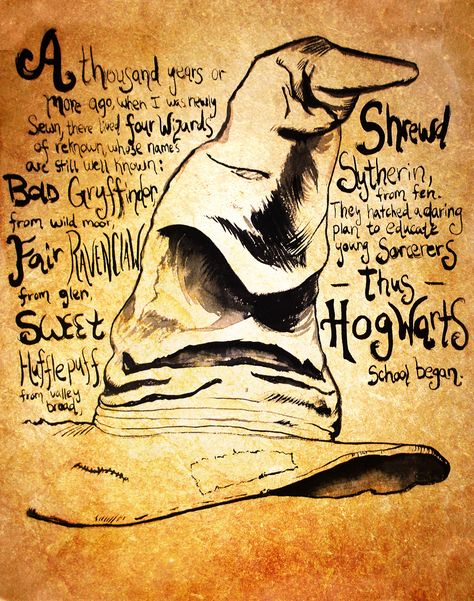 A thousand years or
more ago, when I was newly
sewn, there lived four Wizards
of reknown, whose names
are still well known:
Bold Gryffindor
from wild moor,
Fair Ravenclaw
from glen,
Sweet
Hufflepuff
from valley
broad,
Shrewd
Slytherin,
from fen.
They hatched a daring
plan to educate
young Sorcerers
- thus -
Hogwarts
School began.